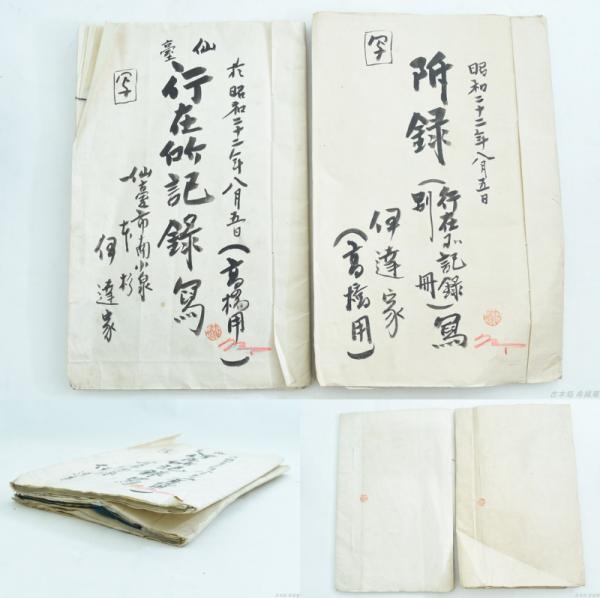 於昭和二十二年八月五日(高橋用)
仙臺
行在所記録寫
写
仙臺市南小泉
一本杉
伊達家
昭和二十二年八月五日
附録(行在所記録別冊)寫
伊達家
(高橋用)
写